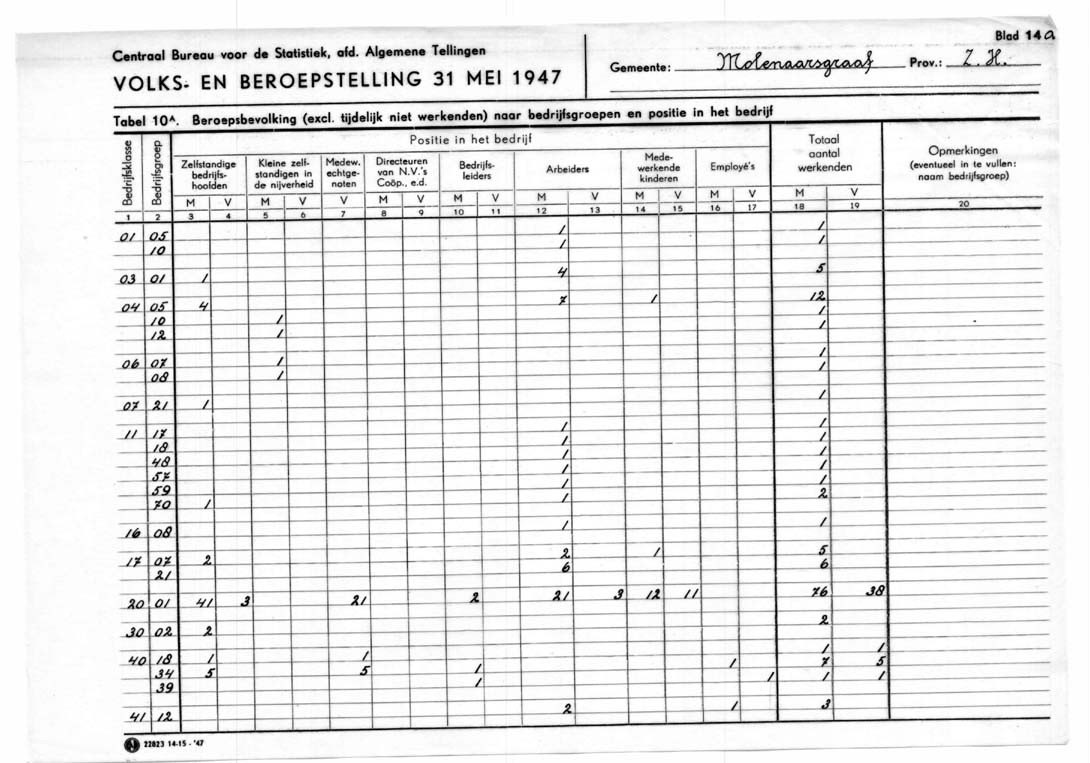 Blad 14a
Centraal Bureau voor de Statistiek, afd. Algemene Tellingen
VOLKS- EN BEROEPSTELLING 31 MEI 1947
Gemeente: Molenaarsgraaf Prov.: Z.H.
Tabel 10A. Beroepsbevolking (excl. tijdelijk niet werkenden) naar bedrijfsgroepen en positie in het bedrijf
Bedrijfsklasse Bedrijfsgroep Positie in het bedrijf Totaal aantal werkenden Opmerkingen (eventueel in te vullen: naam bedrijfsgroep)
Zelfstandige bedrijfs-hoofden Kleine zelf-standigen in de nijverheid Medew. echtge-noten Directeuren van N.V.'s Coöp., e.d. Bedrijfs-leiders Arbeiders Mede-werkende kinderen Employé's
M V M V V M V M V M V M V M V M V
1 2 3 4 5 6 7 8 9 10 11 12 13 14 15 16 17 18 19 20
01 05 1 1
10 1 1
03 01 1 4 5
04 05 4 7 1 12
10 1 1
12 1 1
06 07 1 1
08 1 1
07 21 1 1
11 17 1 1
18 1 1
48 1 1
57 1 1
59 1 1
70 1 1 2
16 08 1 1
17 07 2 2 1 5
21 6 6
20 01 41 3 21 2 21 3 12 11 76 38
30 02 2 2
40 18 1 1 1 1
34 5 5 1 1 7 5
39 1 1 1 1
41 12 2 1 3
22823 14-15 - '47